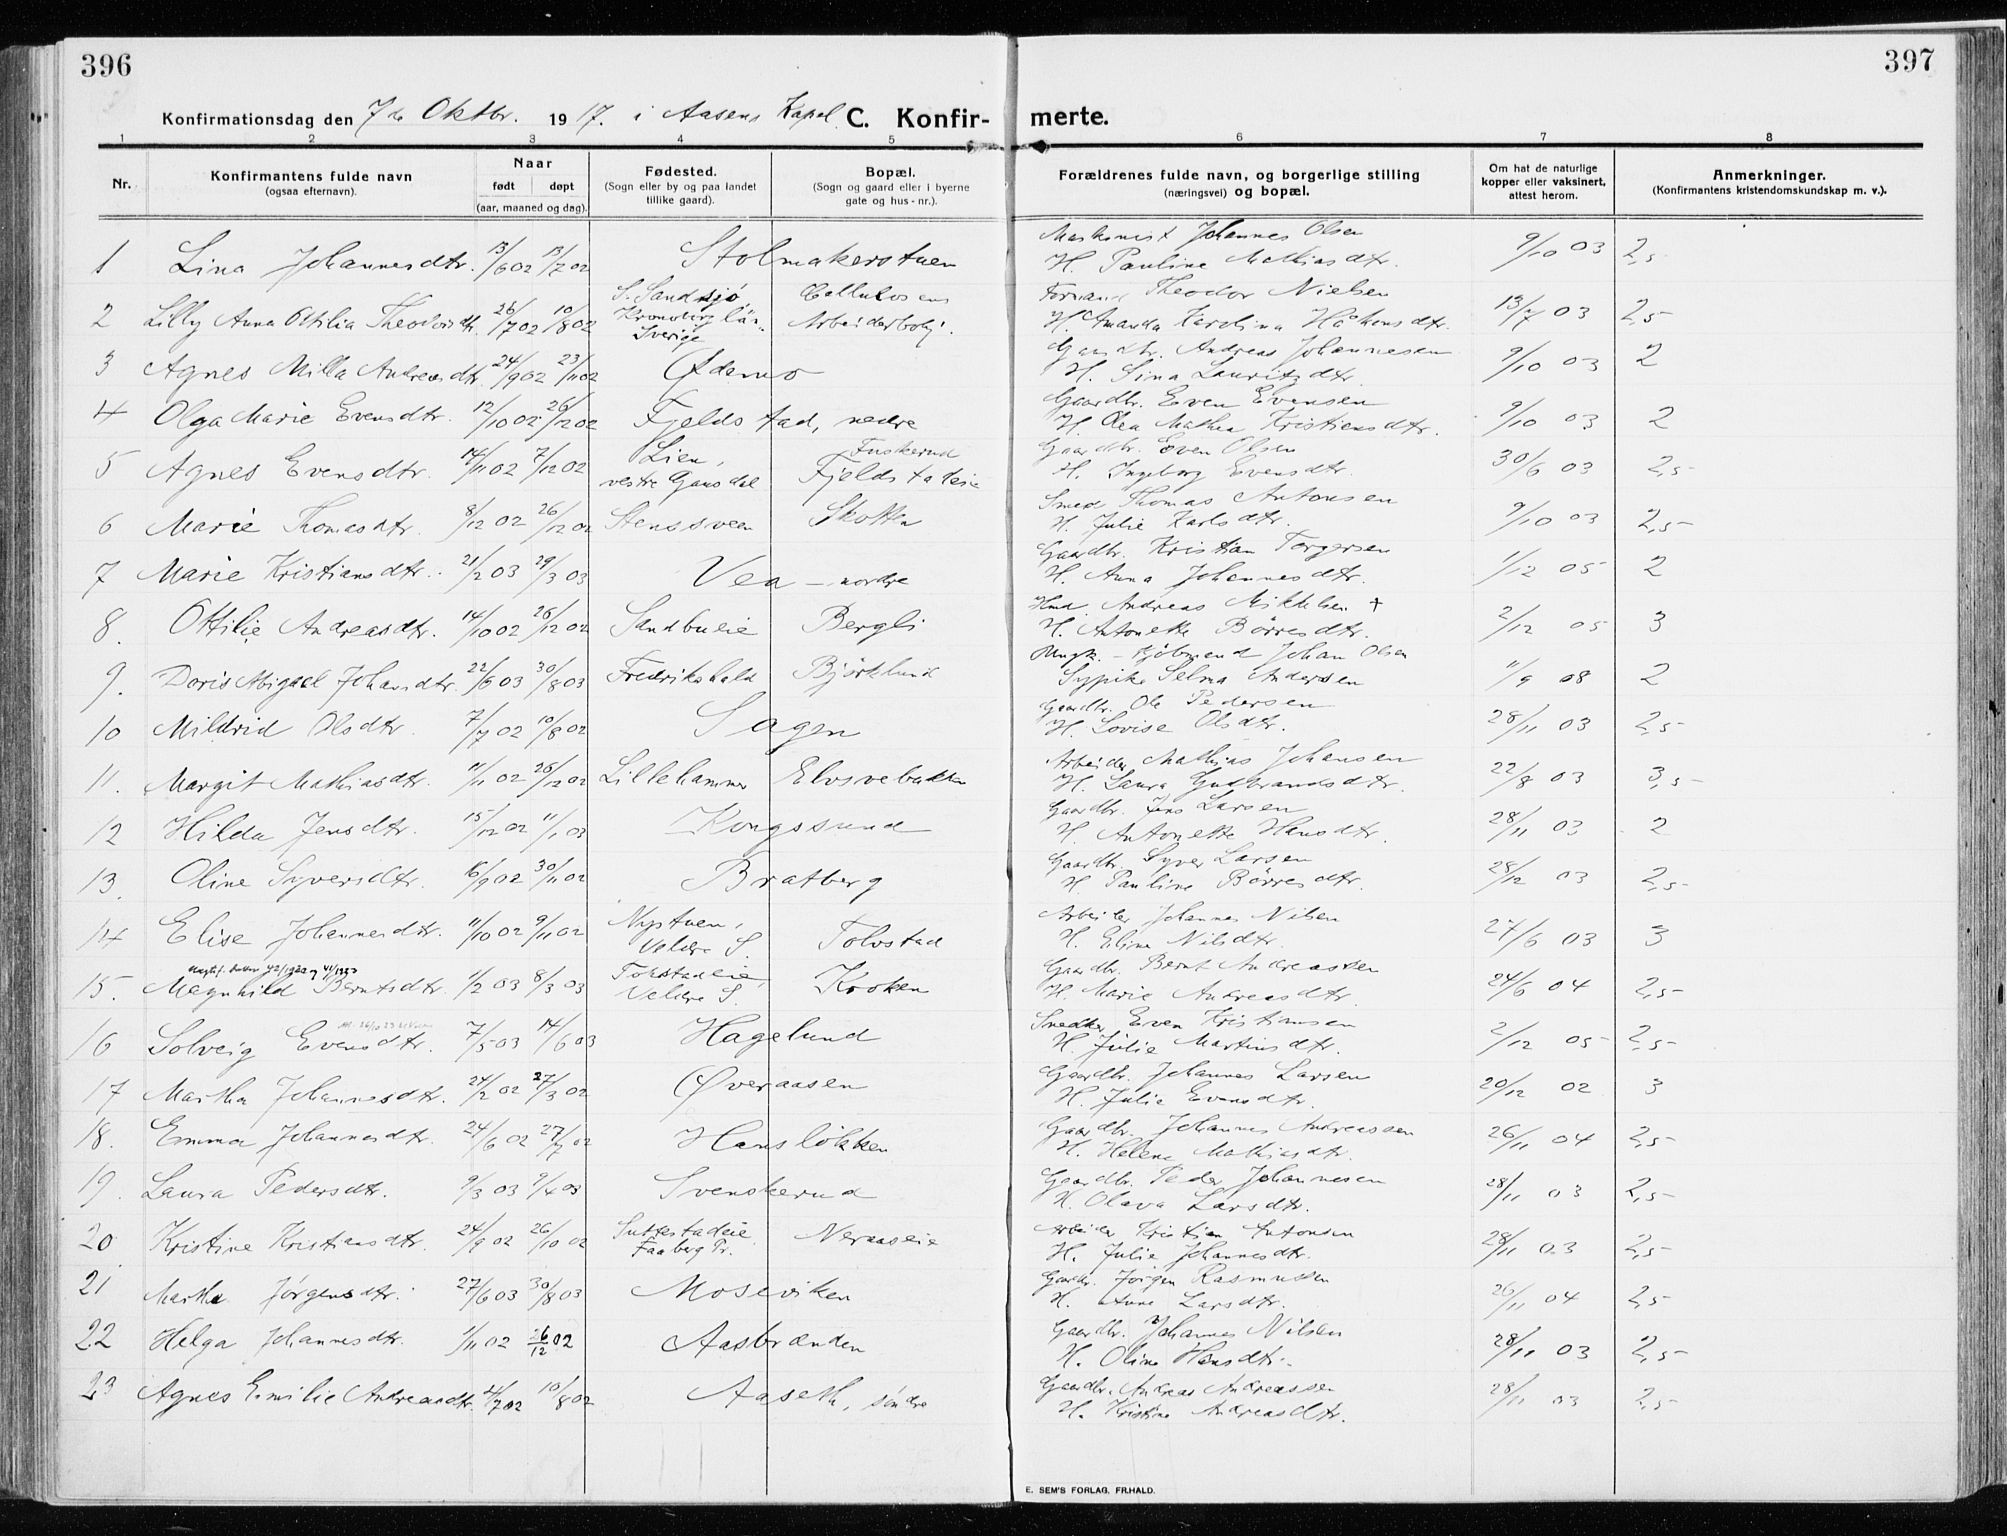 396
397
Konfirmationsdag den 7de Oktbr. 1917. i Aasens Kapel. C. Konfir-merte.
1 2 3 4 5 6 7 8
Nr.
Konfirmantens fulde navn (ogsaa efternavn).
Naar født døpt (aar, maaned og dag).
Fødested. (Sogn eller by og paa landet tillike gaard).
Bopæl. (Sogn og gaard eller i byerne gate og hus-nr.).
Forældrenes fulde navn, og borgerlige stilling (næringsvei) og bopæl.
Om hat de naturlige kopper eller vaksinert, attest herom.
Anmerkninger. (Konfirmantens kristendomskundskap m. v.).
1 Lina Johannesdtr. 13/6 02 13/7 02 Stolmakerstuen Maskinist Johannes Olsen
H. Pauline Mathiasdtr. 9/10 03 2,5
2 Lilly Anna Ottilia Theodorsdtr. 26/7 02 10/8 02 S. Sandsjö, Kronoberg län. Sverige Cellulosens Arbeiderbolig. Formand Theodor Nielsen
H. Amanda Karolina Håkansdtr. 13/7 03 2,5
3 Agnes Milla Andreasdtr. 24/9 02 23/11 02 Ødemo Gaardbr. Andreas Johannesen
H. Sina Lauritzdtr. 9/10 03 2
4 Olga Marie Evensdtr. 12/10 02 26/12 02 Fjeldstad, nedre Gaardbr. Even Evensen
H. Olea Mathea Kristiansdtr. 9/10 03 2
5 Agnes Evensdtr. 14/11 02 7/12 02 Lien, vestre Gausdal Fuskerud Fjeldstadeie Gaardbr. Even Olsen
H. Ingeborg Evensdtr. 30/6 03 2,5
6 Marie Thomasdtr. 8/12 02 26/12 02 Stenssveen Skotten Smed Thomas Antonsen
H. Julie Karlsdtr. 9/10 03 2,5
7 Marie Kristiansdtr. 21/2 03 29/3 03 Vea - nordre Gaardbr. Kristian Torgersen
H. Anna Johannesdtr. 1/12 05 2
8. Ottilie Andreasdtr. 14/10 02 26/12 02 Sandbueie Bergli Hmd. Andreas Mikkelsen +
H. Antonette Börresdtr. 2/12 05 3
9. Doris Abigael Johansdtr. 22/6 03 30/8 03 Fredrikshald Björklund Ungk. - Kjöbmand Johan Olsen
Sypike Selma Andersen 11/9 08 2
10 Mildrid Olsdtr. 7/7 02 10/8 02 Sagen Gaardbr. Ole Pedersen
H. Lovise Olsdtr. 28/11 03 2,5
11. Margit Mathiasdtr. 11/11 02 26/12 02 Lillehammer Elvsvebakken Arbeider Mathias Johansen
H. Laura Gudbrandsdtr. 22/8 03 3,5
12 Hilda Jensdtr. 15/12 02 11/1 03 Kongssund Gaardbr. Jens Larsen
H. Antonette Hansdtr. 28/11 03 2
13. Oline Syversdtr. 16/9 02 30/11 02 Bratberg Gaardbr. Syver Larsen
H. Pauline Börresdtr. 28/12 03 2,5
14 Elise Johannesdtr. 11/10 02 9/11 02 Nystuen, Veldre S. Tolvstad Arbeider Johannes Nilsen
H. Eline Nilsdtr. 27/6 03 3
15. Magnhild Berntsdtr. 1/2 03 8/3 03 Tokstadeie, Veldre S. Kroken Gaardbr. Bernt Andreassen
H. Marie Andreasdtr. 24/6 04 2,5
16 Solveig Evensdtr. 7/5 03 14/6 03 Hagelund Snedker Even Kristiansen
H. Julie Martinsdtr. 2/12 05 2,5
17 Martha Johannesdtr. 24/2 02 27/3 02 Øveraasen Gaardbr. Johannes Larsen
H. Julie Evensdtr. 20/12 02 3
18. Emma Johannesdtr. 24/6 02 27/7 02 Hanslökken Gaardbr. Johannes Andreassen
H. Helene Mathiasdtr. 26/11 04 2,5
19. Laura Pedersdtr. 9/3 03 9/4 03 Svenskerud Gaardbr. Peder Johannesen
H. Olava Larsdtr. 28/11 03 2,5
20 Kristine Kristiansdtr. 24/9 02 26/10 02 Suttestadeie Faaberg Pr. Neraaseie Arbeider Kristian Antonsen
H. Julie Johannesdtr. 28/11 03 2,5
21 Martha Jørgensdtr. 27/6 03 30/8 03 Moseviken Gaardbr. Jörgen Rasmussen
H. Anne Larsdtr. 26/11 04 2,5
22 Helga Johannesdtr. 1/11 02 26/12 02 Aasbrænden Gaardbr. Johannes Nilsen
H. Oline Hansdtr. 28/11 03 2,5
23 Agnes Emilie Andreasdtr. 4/7 02 10/8 02 Aaseth, söndre Gaardbr. Andreas Andreassen
H. Kristine Andreasdtr. 28/11 03 2,5
E. SEM'S FORLAG, FR.HALD.